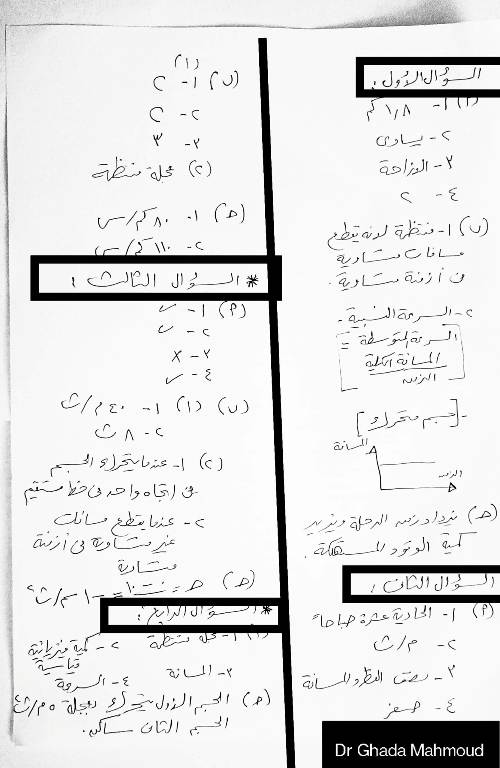 السؤال الأول :
(P) ١- ١٫٨ كم
٢- يساوى
٣- الإزاحة
٤- ٢
(ب) ١- منتظمة لأنه يقطع
مسافات متساوية
فى أزمنة متساوية .
٢- السرعة النسبية .
السرعة المتوسطة =
المسافة الكلية
الزمن
- [جسم متحرك]
المسافة
الزمن
(حـ) يزداد زمن الرحلة ويزيد
كمية الوقود المستهلكة .
السؤال الثانى :
(P) ١- الحادية عشرة صباحاً
٢- م/ث
٣- نصف القطر والمسافة
٤- صفر
(١)
(ب) ١- ح
٢- ح
٣- ٣
(٢) عجلة منتظمة
(حـ) ١- ٨٠ كم/س
٢- ١١٠ كم/س
* السؤال الثالث :
(P) ١- ✓
٢- ✓
٣- x
٤- ✓
(ب) (١) ١- ٤٠ م/ث
٢- ٨ ث
(٢) ١- عندما يتحرك الجسم
فى اتجاه واحد فى خط مستقيم
٢- عندما يقطع مسافات
غير متساوية فى أزمنة
متساوية
(حـ)
* السؤال الرابع :
(P) ١- عجلة منتظمة ٢- كمية فيزيائية
قياسية
٣- المسافة ٤- السرعة
(حـ) الجسم الأول يتحرك بعجلة ٥ م/ث٢
الجسم الثانى ساكن .
Dr Ghada Mahmoud